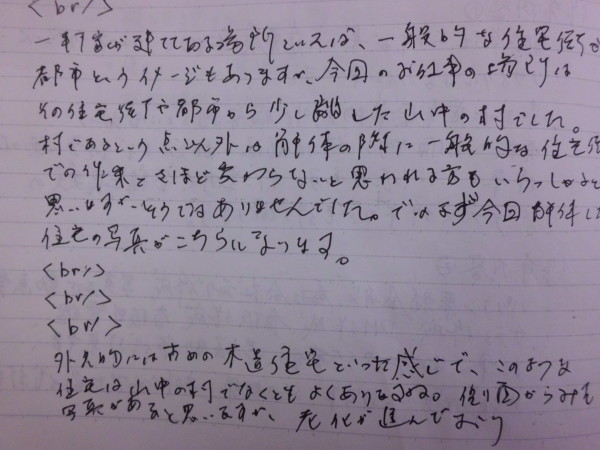 <br/>
一軒家が建ててある場所といえば、一般的な住宅街か
都市というイメージもありますが、今回のお仕事の場所は
その住宅街や都市から少し離れた山中の村でした。
村であるという点以外は解体の際に一般的な住宅街
での作業とさほど変わらないと思われる方もいらっしゃると
思いますがそうではありませんでした。ではまず今回解体した
住宅の写真がこちらになります。
<br/>
<br/>
<br/>
外見的には古めの木造住宅といった感じで、このような
住宅は山中の村でなくともよくありますね。側面からみた
写真があると思いますが、老化が進んでおり